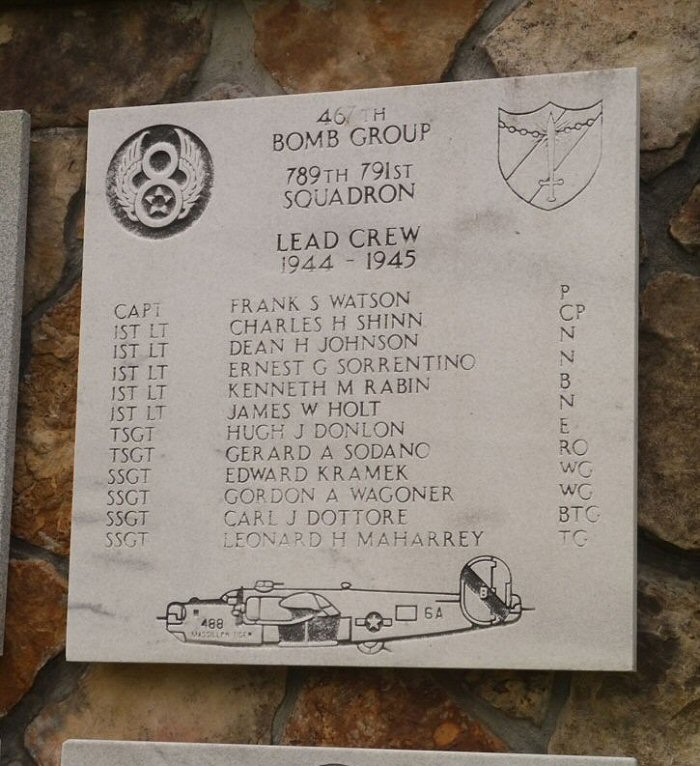 467TH
BOMB GROUP
789TH 791ST
SQUADRON
LEAD CREW
1944 - 1945
CAPT FRANK S WATSON P
1ST LT CHARLES H SHINN CP
1ST LT DEAN H JOHNSON N
1ST LT ERNEST G SORRENTINO N
1ST LT KENNETH M RABIN B
1ST LT JAMES W HOLT N
TSGT HUGH J DONLON E
TSGT GERARD A SODANO RO
SSGT EDWARD KRAMEK WG
SSGT GORDON A WAGONER WG
SSGT CARL J DOTTORE BTG
SSGT LEONARD H MAHARREY TG
488
6A
B